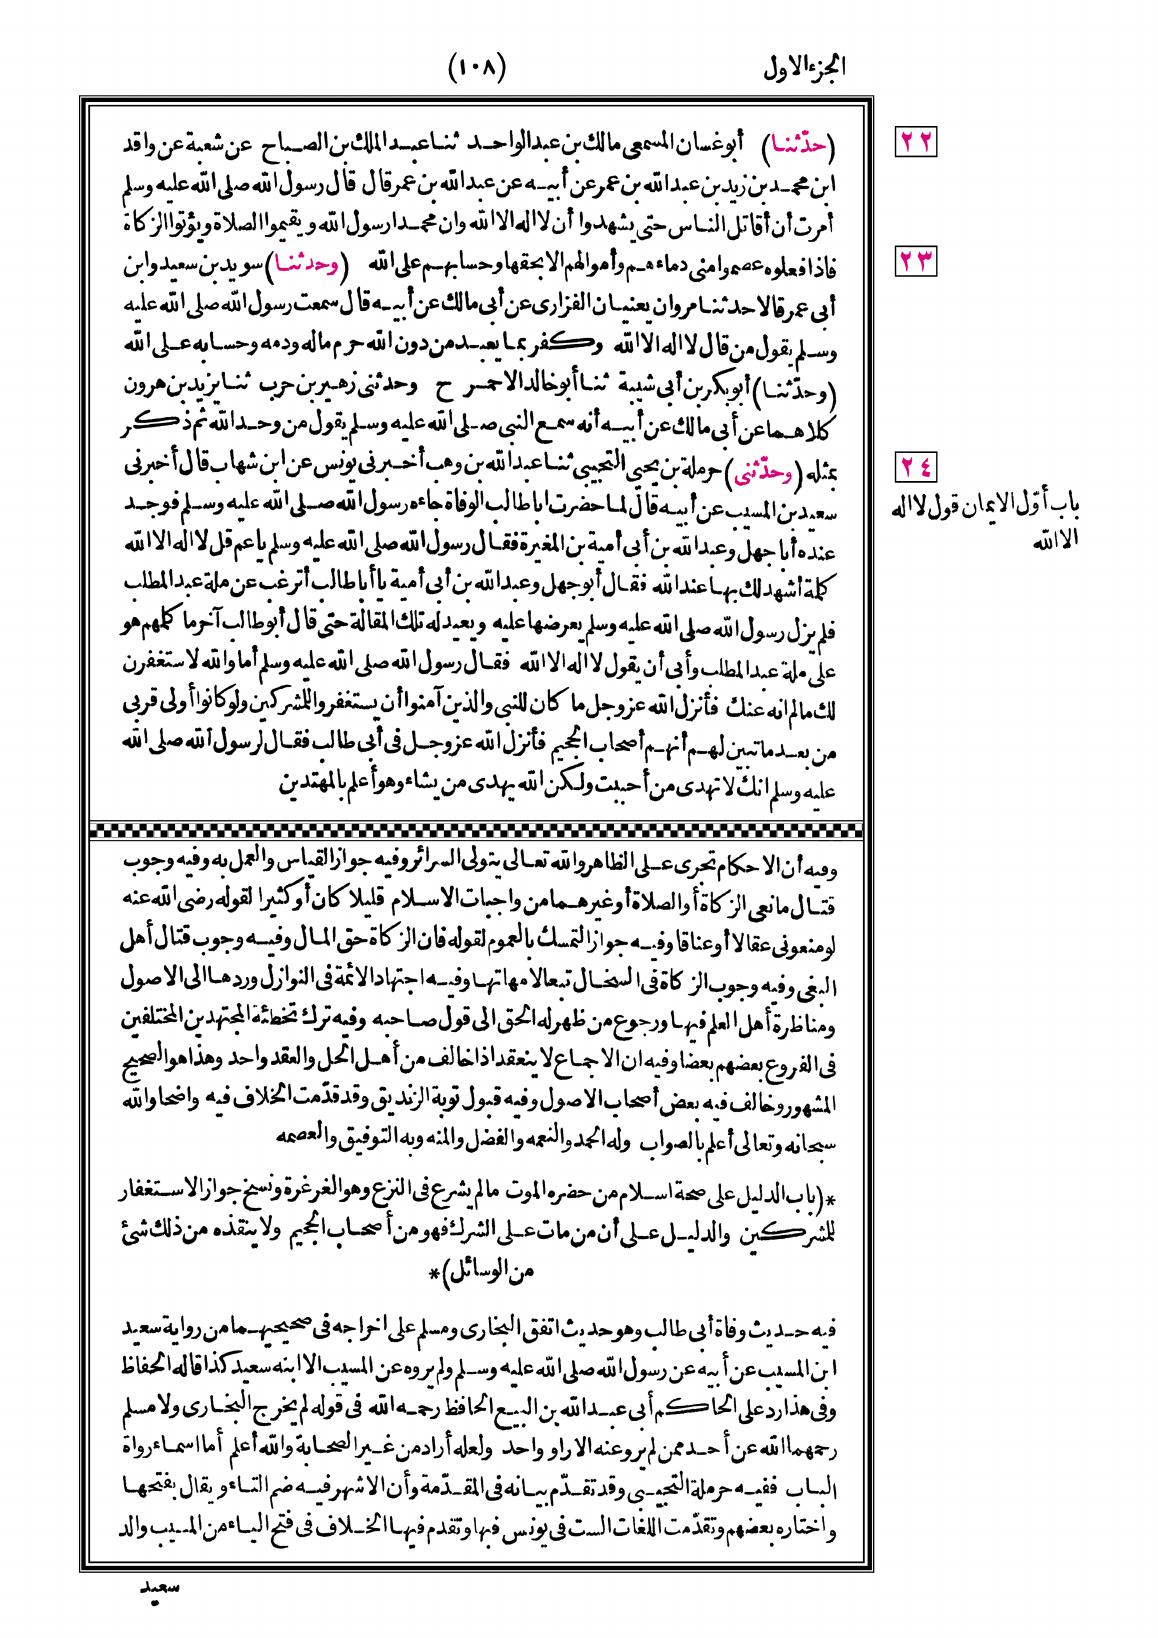 الجزء الاول
(١٠٨)
٢٢
(حدّثنا) أبوغسان المسمعى مالك بن عبدالواحد ثنا عبد الملك بن الصباح عن شعبة عن واقد
ابن محمد بن زيد بن عبدالله بن عمر عن أبيه عن عبدالله بن عمر قال قال رسول الله صلى الله عليه وسلم
أمرت أن أقاتل الناس حتى يشهدوا أن لا اله الا الله وان محمدا رسول الله ويقيموا الصلاة ويؤتوا الزكاة
٢٣
فاذا فعلوه عصموا منى دماءهم وأموالهم الابحقها وحسابهم على الله (وحدثنا) سويد بن سعيد وابن
أبى عمر قالا حدثنا مروان يعنيان الفزارى عن أبى مالك عن أبيه قال سمعت رسول الله صلى الله عليه
وسلم يقول من قال لا اله الا الله وكفر بما يعبد من دون الله حرم ماله ودمه وحسابه على الله
(وحدّثنا) أبو بكر بن أبى شيبة ثنا أبو خالد الاحمر ح وحدثنى زهير بن حرب ثنا يزيد بن هرون
كلاهما عن أبى مالك عن أبيه أنه سمع النبى صلى الله عليه وسلم يقول من وحد الله ثم ذكر
٢٤
بمثله (وحدّثنى) حرملة بن يحيى التجيبى ثنا عبدالله بن وهب أخبرنى يونس عن ابن شهاب قال أخبرنى
باب أوّل الايمان قول لا اله
الا الله
سعيد بن المسيب عن أبيه قال لما حضرت اباطالب الوفاة جاءه رسول الله صلى الله عليه وسلم فوجد
عنده أباجهل وعبدالله بن أبى أمية بن المغيرة فقال رسول الله صلى الله عليه وسلم ياعم قل لا اله الا الله
كلمة أشهد لك بها عند الله فقال أبو جهل وعبدالله بن أبى أمية يا أباطالب أترغب عن ملة عبدالمطلب
فلم يزل رسول الله صلى الله عليه وسلم يعرضها عليه ويعيد له تلك المقالة حتى قال أبوطالب آخر ما كلمهم هو
على ملة عبدالمطلب وأبى أن يقول لا اله الا الله فقال رسول الله صلى الله عليه وسلم أما والله لاستغفرن
لك مالم انه عنك فأنزل الله عزوجل ما كان للنبى والذين آمنوا أن يستغفروا للمشركين ولو كانوا أولى قربى
من بعد ماتبين لهم أنهم أصحاب الجحيم فأنزل الله عزوجل فى أبى طالب فقال لرسول الله صلى الله
عليه وسلم انك لاتهدى من أحببت ولكن الله يهدى من يشاء وهو أعلم بالمهتدين
وفيه أن الاحكام تجرى على الظاهر والله تعالى يتولى السرائر وفيه جواز القياس والعمل به وفيه وجوب
قتال مانعى الزكاة أو الصلاة أو غيرهما من واجبات الاسلام قليلا كان أو كثيرا لقوله رضى الله عنه
لو منعونى عقالا أو عناقا وفيه جواز التمسك بالعموم لقوله فان الزكاة حق المال وفيه وجوب قتال أهل
البغى وفيه وجوب الزكاة فى السخال تبعا لامهاتها وفيه اجتهاد الائمة فى النوازل وردها الى الاصول
ومناظرة أهل العلم فيها ورجوع من ظهر له الحق الى قول صاحبه وفيه ترك تخطئة المجتهدين المختلفين
فى الفروع بعضهم بعضا وفيه ان الاجماع لا ينعقد اذا خالف من أهل الحل والعقد واحد وهذا هو الصحيح
المشهور وخالف فيه بعض أصحاب الاصول وفيه قبول توبة الزنديق وقد قدّمت الخلاف فيه واضحا والله
سبحانه وتعالى أعلم بالصواب وله الحمد والنعمه والفضل والمنه وبه التوفيق والعصمه
*(باب الدليل على صحة اسلام من حضره الموت مالم يشرع فى النزع وهو الغرغرة ونسخ جواز الاستغفار
للمشركين والدليل على أن من مات على الشرك فهو من أصحاب الجحيم ولا ينقذه من ذلك شئ
من الوسائل)*
فيه حديث وفاة أبى طالب وهو حديث اتفق البخارى ومسلم على اخراجه فى صحيحيهما من رواية سعيد
ابن المسيب عن أبيه عن رسول الله صلى الله عليه وسلم ولم يروه عن المسيب الا ابنه سعيد كذا قاله الحفاظ
وفى هذا رد على الحاكم أبى عبدالله بن البيع الحافظ رحمه الله فى قوله لم يخرج البخارى ولا مسلم
رحمهما الله عن أحد ممن لم يرو عنه الا راو واحد ولعله أراد من غير الصحابة والله أعلم أما اسماء رواة
الباب ففيه حرملة التجيبى وقد تقدّم بيانه فى المقدّمة وأن الاشهر فيه ضم التاء ويقال بفتحها
واختاره بعضهم وتقدّمت اللغات الست فى يونس فيها وتقدم فيها الخلاف فى فتح الياء من المسيب والد
سعيد